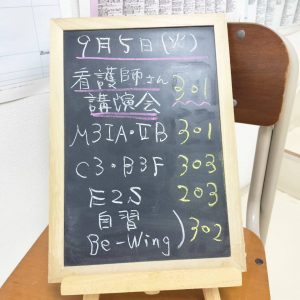 9月5日(火)
看護師さん 301
講演会
M3ⅠA・ⅡB 301
C3・B3F 303
E2S 203
自習
Be-Wing ) 302